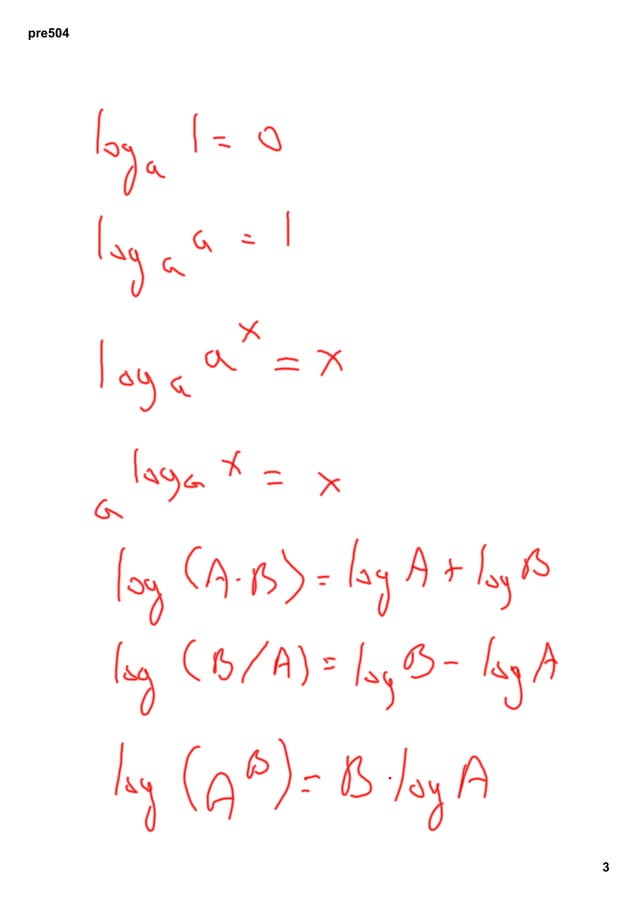 pre504
logₐ 1 = 0
logₐ a = 1
logₐ aˣ = x
a^(logₐ x) = x
log (A·B) = log A + log B
log (B/A) = log B - log A
log (A^B) = B·log A
3